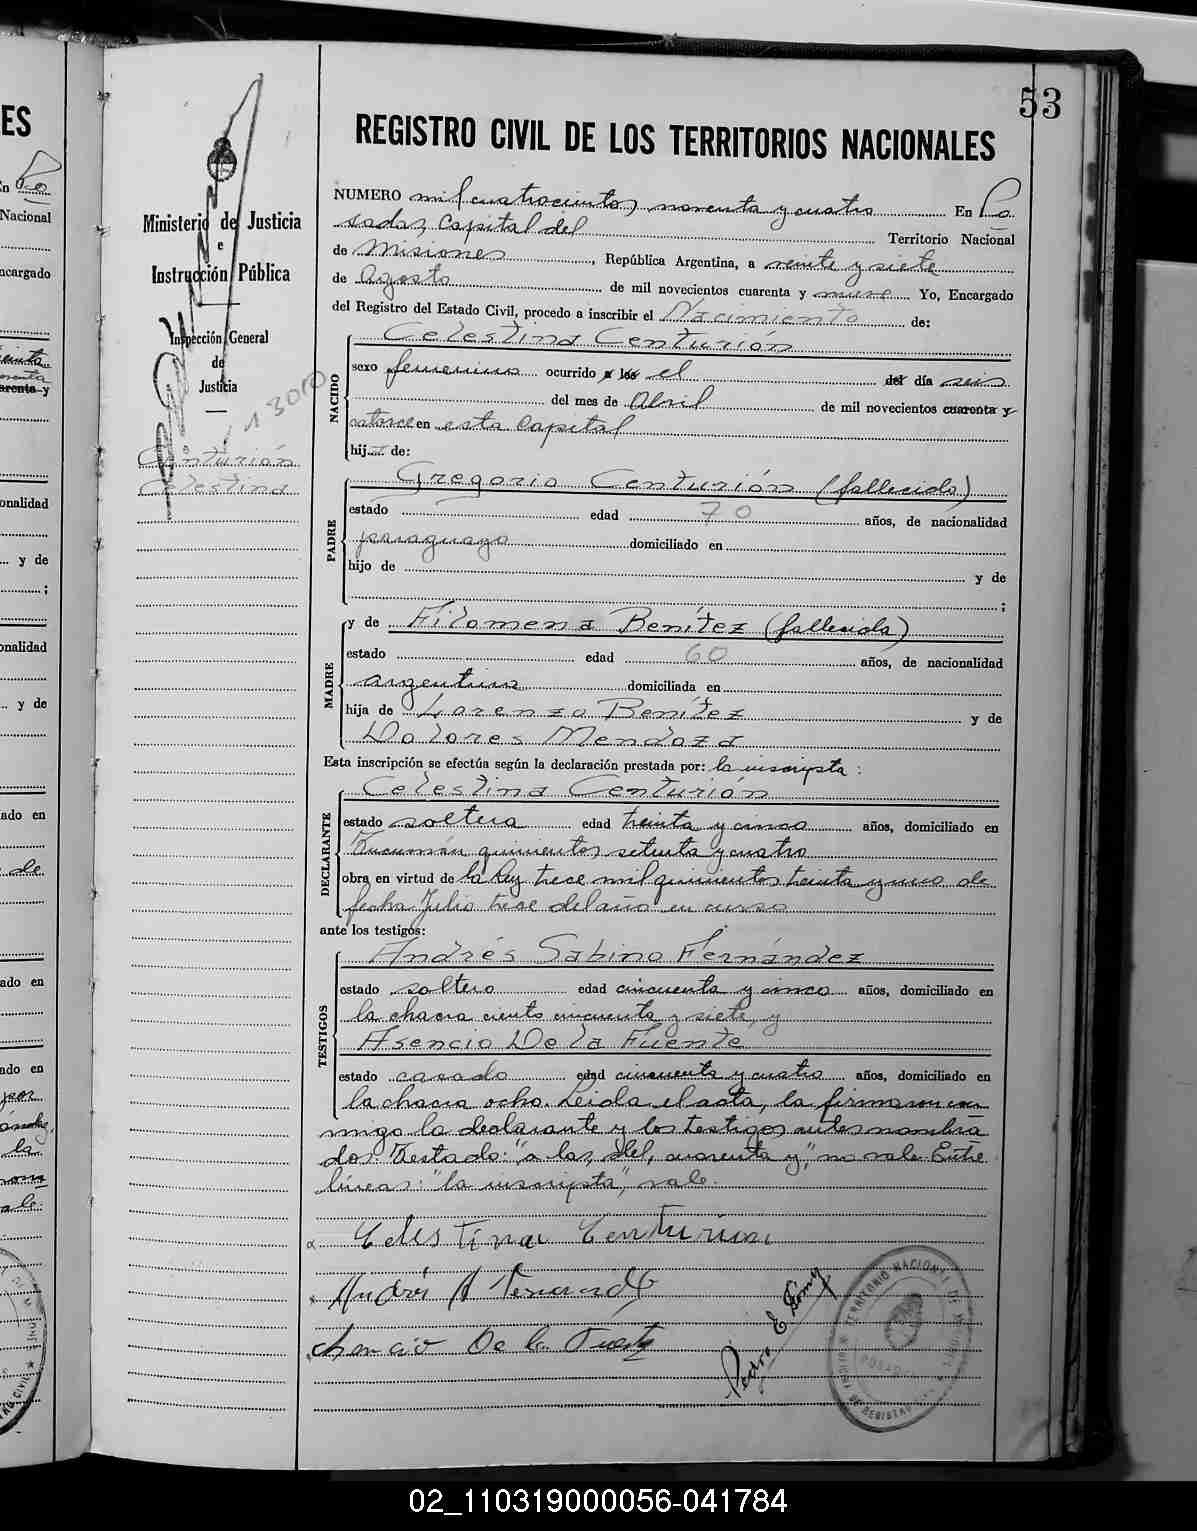 53
REGISTRO CIVIL DE LOS TERRITORIOS NACIONALES
Ministerio de Justicia
e
Instrucción Pública
Inspección General
de
Justicia
13010
Centurión
Celestina
NUMERO mil cuatrocientos noventa y cuatro En Po
sadas, Capital del Territorio Nacional
de Misiones, República Argentina, a veinte y siete
de Agosto de mil novecientos cuarenta y nueve Yo, Encargado
del Registro del Estado Civil, procedo a inscribir el Nacimiento de:
NACIDO
Celestina Centurión
sexo femenino ocurrido a las el del día seis
del mes de Abril de mil novecientos cuarenta y
catorce en esta Capital
hij de:
PADRE
Gregorio Centurión (fallecido)
estado edad 70 años, de nacionalidad
paraguaya domiciliado en
hijo de y de
;
MADRE
y de Filomena Benítez (fallecida)
estado edad 60 años, de nacionalidad
argentina domiciliada en
hija de Lorenzo Benítez y de
Dolores Mendoza
Esta inscripción se efectúa según la declaración prestada por: la inscripta:
DECLARANTE
Celestina Centurión
estado soltera edad treinta y cinco años, domiciliado en
Tucumán quinientos setenta y cuatro
obra en virtud de la ley trece mil quinientos treinta y uno de
fecha Julio trece del año en curso
ante los testigos:
TESTIGOS
Andrés Sabino Fernández
estado soltero edad cincuenta y cinco años, domiciliado en
la chacra ciento cincuenta y siete, y
Asencio De la Fuente
estado casado edad cincuenta y cuatro años, domiciliado en
la chacra ocho. Leida el acta, la firmaron con
migo la declarante y los testigos antes nombra
dos. Testado: "a las, del, cuarenta y," no vale. Entre
líneas: "la inscripta", vale.
Celestina Centurion
Andrés A Fernandez
Asencio De la Fuente
Pedro E
TERRITORIO NACIONAL DE MISIONES
POSADAS
02_110319000056-041784